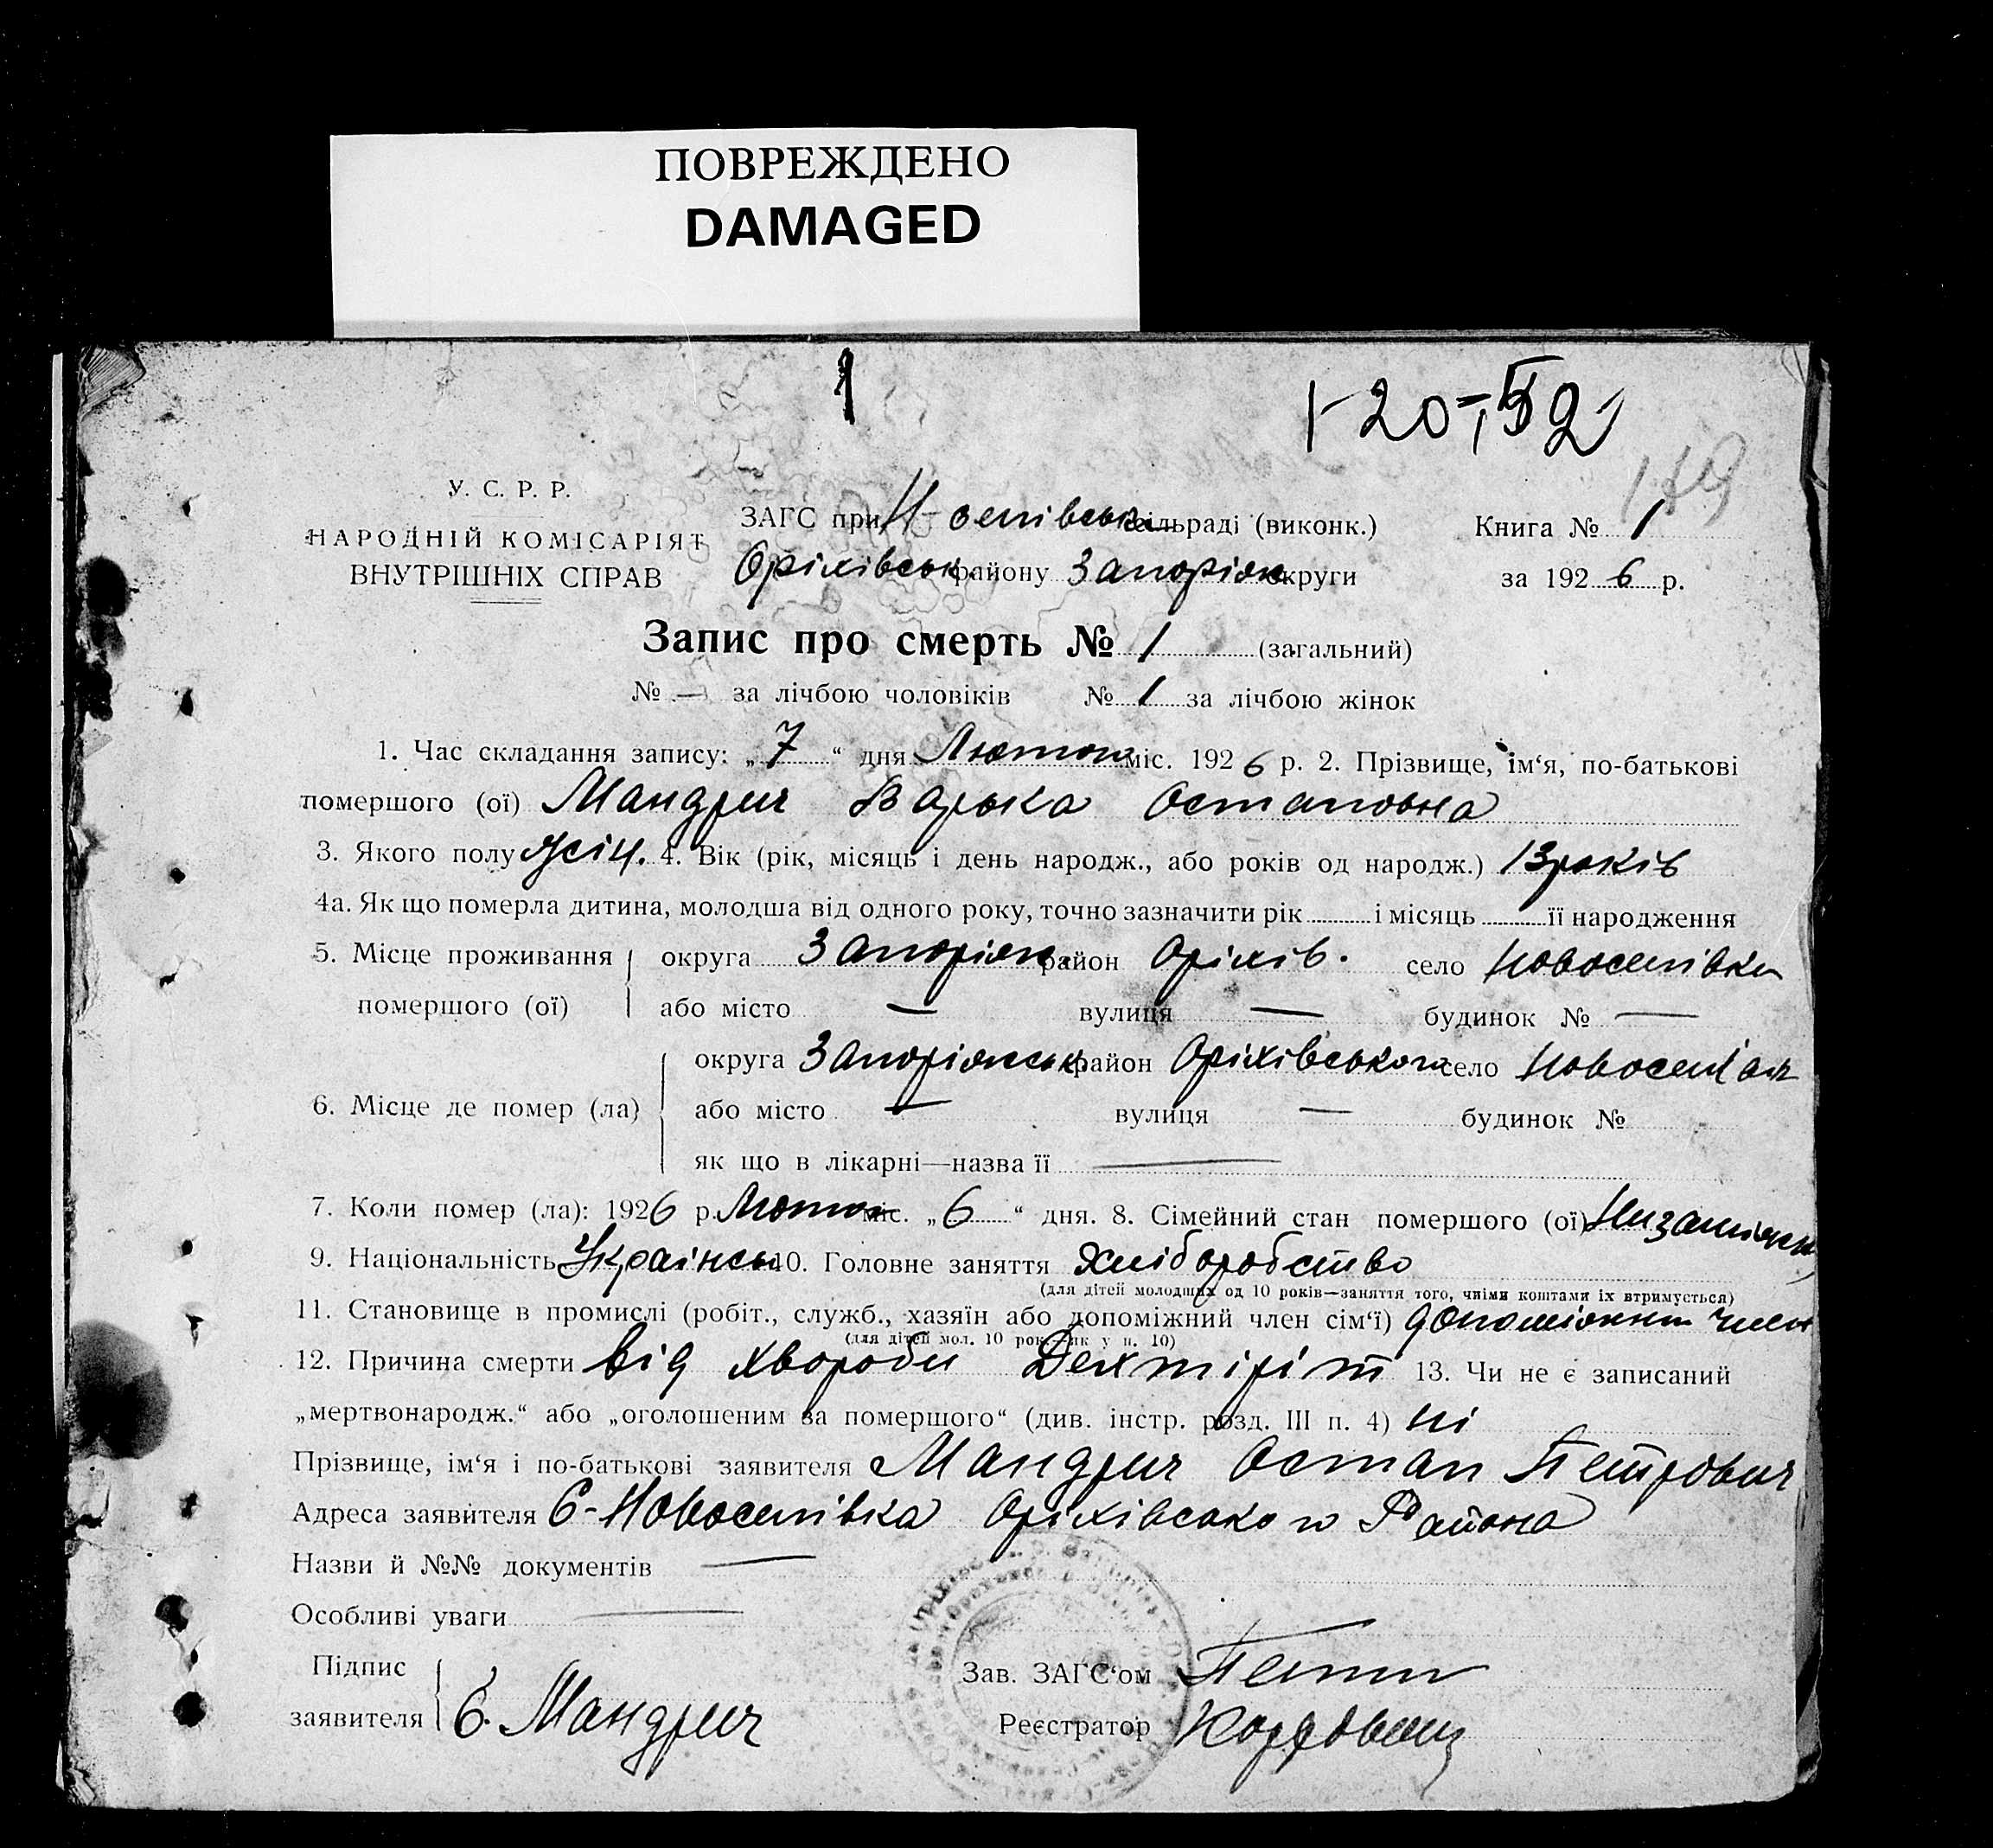 ПОВРЕЖДЕНО
DAMAGED
1
У. С. Р. Р.
НАРОДНІЙ КОМІСАРІЯТ
ВНУТРІШНІХ СПРАВ
ЗАГС при Н-селівськ сільраді (виконк.)
Оріхівськ. району Запоріж округи
Книга № 1
за 1926 р.
Запис про смерть № 1 (загальний)
№ — за лічбою чоловіків № 1 за лічбою жінок
1. Час складання запису: „7“ дня Лютого міс. 1926 р. 2. Прізвище, ім‘я, по-батькові
помершого (ої) Мандрич Варька Остаповна
3. Якого полу жін. 4. Вік (рік, місяць і день народж., або років од народж.) 13 років
4а. Як що померла дитина, молодша від одного року, точно зазначити рік і місяць її народження
5. Місце проживання округа Запоріж. район Оріхів. село Новоселівка
помершого (ої) або місто — вулиця — будинок № —
округа Запоріжськ. район Оріхівського село
6. Місце де помер (ла) або місто — вулиця — будинок №
як що в лікарні—назва її —
7. Коли помер (ла): 1926 р. Лютого міс. „6“ дня. 8. Сімейний стан помершого (ої)
9. Національність Українськ 10. Головне заняття Хліборобство
(для дітей молодших од 10 років—заняття того, чиїми коштами їх втримується)
11. Становище в промислі (робіт., служб., хазяїн або допоміжний член сім‘ї) допоміжний член
(для дітей мол. 10 рок.—як у п. 10)
12. Причина смерти від хвороби Дехтіріт 13. Чи не є записаний
„мертвонародж.“ або „оголошеним за помершого“ (див. інстр. розд. III п. 4) ні
Прізвище, ім‘я і по-батькові заявителя Мандрич Остап Петрович
Адреса заявителя С-Новоселівка Оріхівського Района
Назви й №№ документів —
Особливі уваги —
Підпис
заявителя Мандрич
Зав. ЗАГС‘ом
Реєстратор